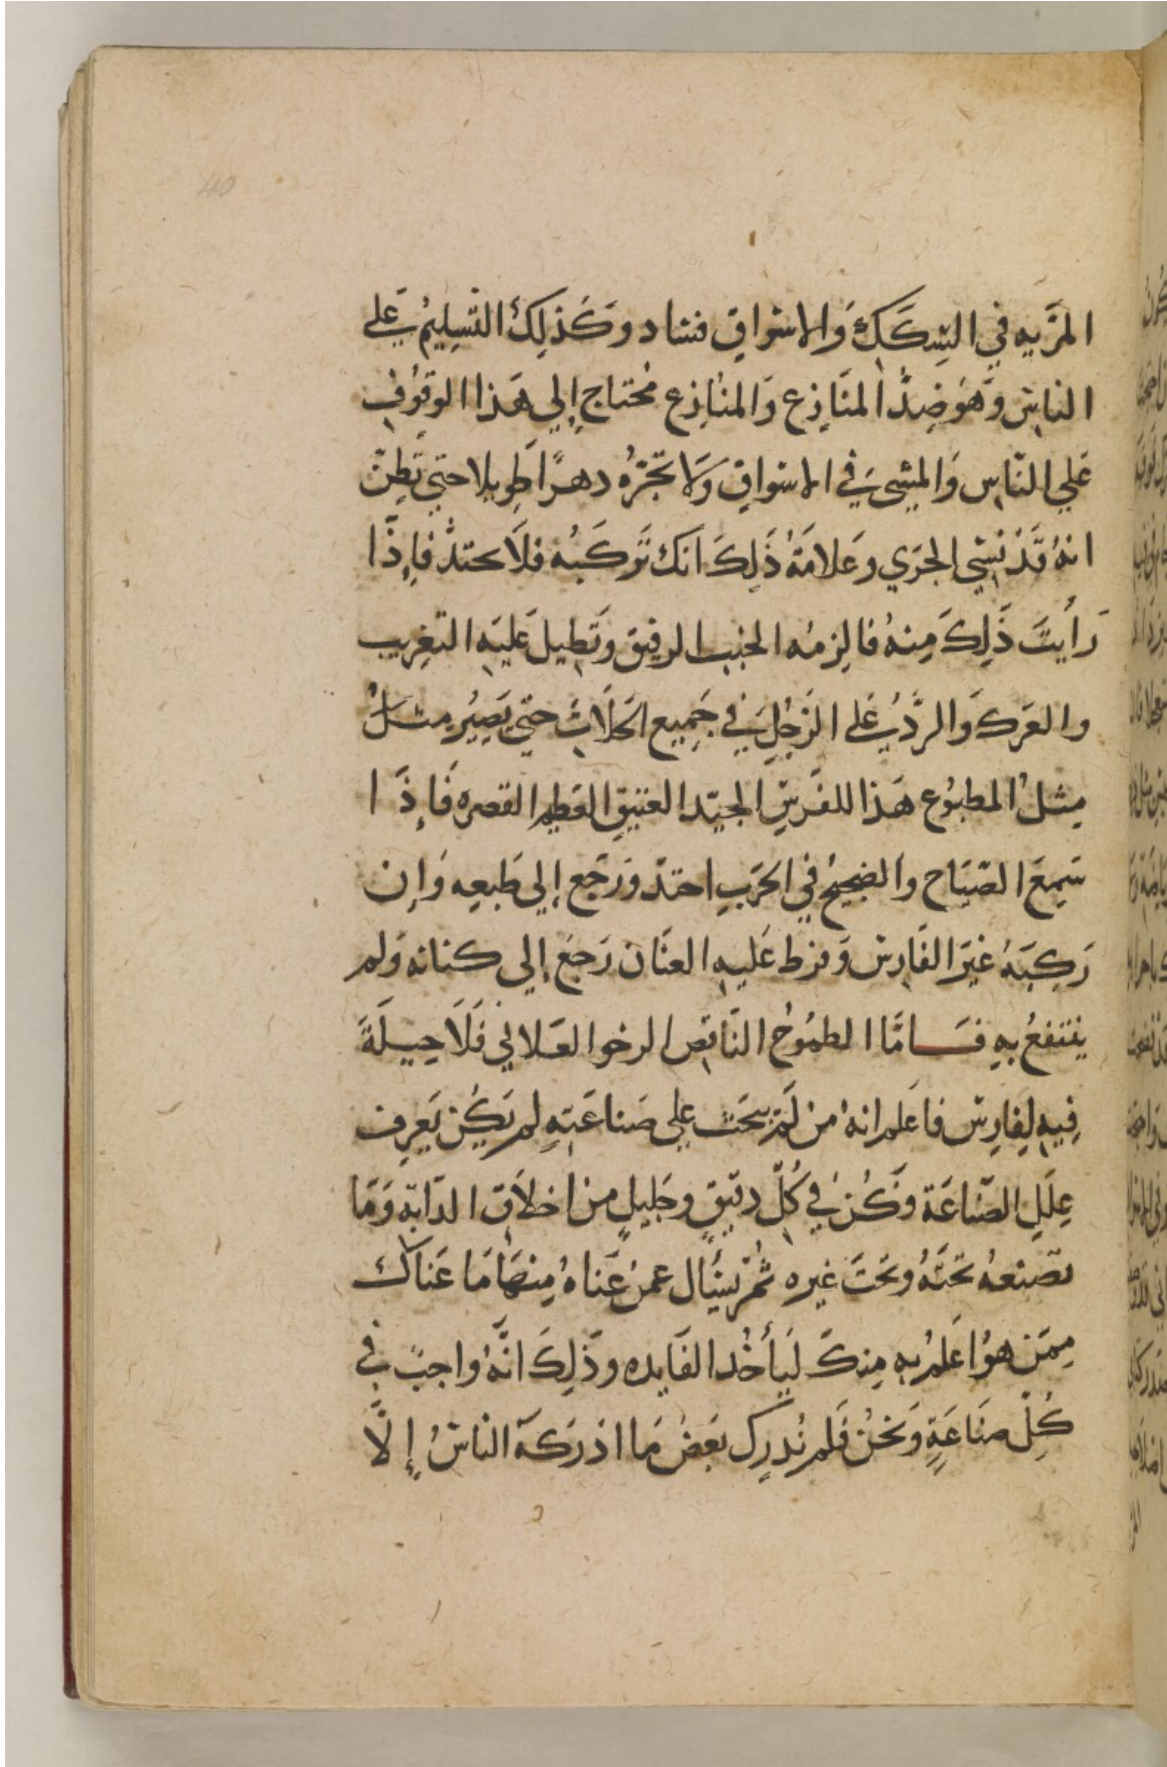 المرَّيه في السِكَكِ وَالاسْواقِ فساد وَكَذلِكَ التَسليمُ عَلي
الناسِ وَهوَ ضِدُّ المنَازِع وَالمنَازِع مُحتاج إلي هَذا الوقوُفِ
عَلي النَاسِ وَالمشي في الاسْواقِ وَلا تجرّهُ دهرًا طَويلا حتي تَظِنّ
انهُ قَدْ نسِي الجرَي وعَلامَةُ ذَلِكَ انَك تَركَبُه فلَا يحتدُّ فإِذَا
رَأيتَ ذَلِكَ مِنهُ فالزِمُه الجنبِ الرفيق وَتَطيل عَليَهِ التغِريب
والعَرك وَالرَّدُ عَلي الرَجُلِ في جَميع الحَلَاتِ حتي يَصِيُر مثلُ
مِثلُ المطبُوع هَذا للفَرسِ الجيّد العتيقِ العَظيم القصره فَإذَا
سَمعَ الصّيَاح والضجيجُ في الحَربِ احتدّ وَرَجَع إلي طَبعِه وَإن
رَكِبَهُ غَيَر الفَارِس وَفرط عَليهِ العنَان رَجَعَ إلي كنانه وَلم
ينتفعُ بهِ فَامَّا الطمُوحُ النَاقِص الرخو العَلاني فَلَا حِيلَةَ
فِيهِ لِفارِس فاعَلم انهُ منَ لَمْ يبحَث علي صَناعَتِهِ لم يَكُن يَعرِف
عِلَلِ الصّناعَة وَكُن في كُلّ دقيقٍ وجَليلٍ من اخلاَق الدَابّهِ وَمَا
تصنعهُ تَحتَهُ وتحتَ غيره ثُمّ يسَال عمنْ عَناهُ مِنهَا مَا عَناك
مِمّن هوُ اعَلمُ بهِ مِنكَ لَيأخُد الفَايده وذَلِكَ انَّهُ واجبٌ في
كُلّ صنَاعَةٍ وَنحنُ فَلم نُدرِك بَعضُ مَا ادْرَكَهُ الناسُ إلَّا